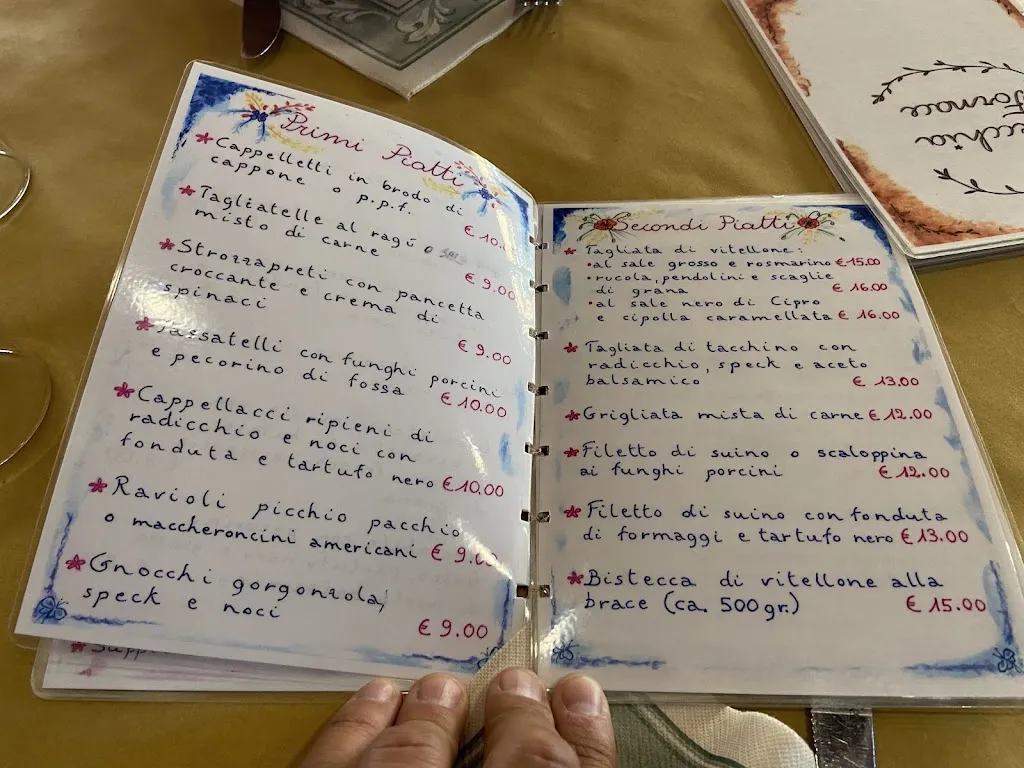 Primi Piatti
* Cappelletti in brodo di
cappone o p.p.f.
€ 10.
* Tagliatelle al ragù o
misto di carne
€ 9.00
* Strozzapreti con pancetta
croccante e crema di
spinaci
€ 9.00
* Passatelli con funghi porcini
e pecorino di fossa
€ 10.00
* Cappellacci ripieni di
radicchio e noci con
fonduta e tartufo nero € 10.00
* Ravioli picchio pacchio
o maccheroncini americani € 9.00
* Gnocchi gorgonzola,
speck e noci
€ 9.00
Secondi Piatti
* Tagliata di vitellone:
• al sale grosso e rosmarino € 15.00
• rucola, pendolini e scaglie
di grana € 16.00
• al sale nero di Cipro
e cipolla caramellata € 16.00
* Tagliata di tacchino con
radicchio, speck e aceto
balsamico € 13.00
* Grigliata mista di carne € 12.00
* Filetto di suino o scaloppina
ai funghi porcini € 12.00
* Filetto di suino con fonduta
di formaggi e tartufo nero € 13.00
* Bistecca di vitellone alla
brace (ca. 500 gr.) € 15.00
ecchia
Fornace